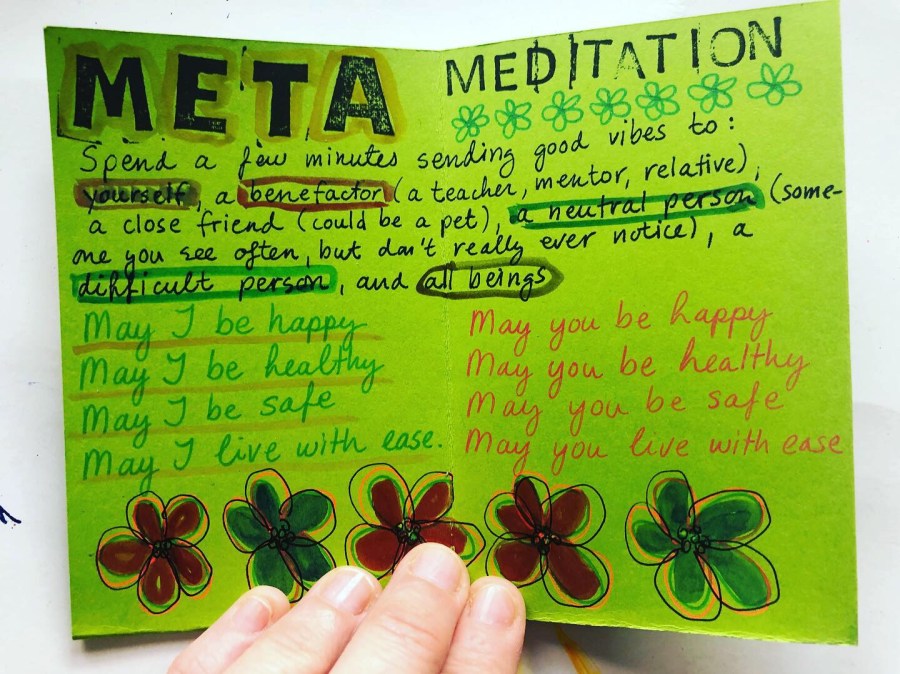 META MEDITATION
Spend a few minutes sending good vibes to:
yourself, a benefactor (a teacher, mentor, relative),
a close friend (could be a pet), a neutral person (some-
one you see often, but don't really ever notice), a
difficult person, and all beings
May I be happy
May I be healthy
May I be safe
May I live with ease.
May you be happy
May you be healthy
May you be safe
May you live with ease